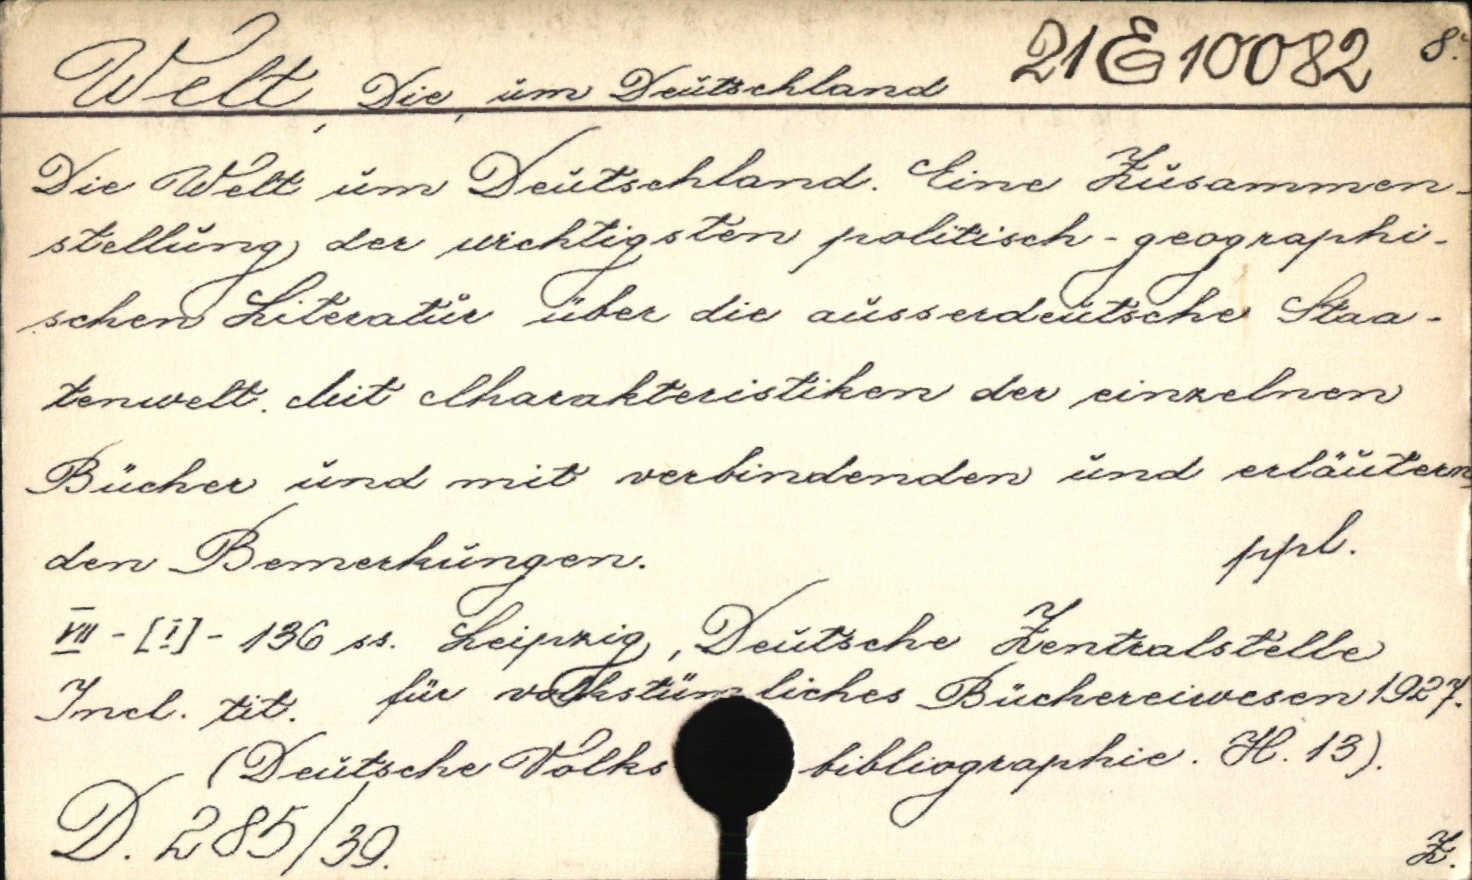 Welt, Die, um Deutschland 21 E 10082 8°.
Die Welt um Deutschland. Eine Zusammen-
stellung der wichtigsten politisch-geographi-
schen Literatur über die ausserdeutsche Staa-
tenwelt. Mit Charakteristiken der einzelnen
Bücher und mit verbindenden und erläutern
den Bemerkungen. ppl.
VII - [I] - 136 ss. Leipzig, Deutsche Zentralstelle
Incl. tit. für volkstümliches Büchereiwesen 1927.
(Deutsche Volksbibliographie. H. 13).
D. 285/39. Z.